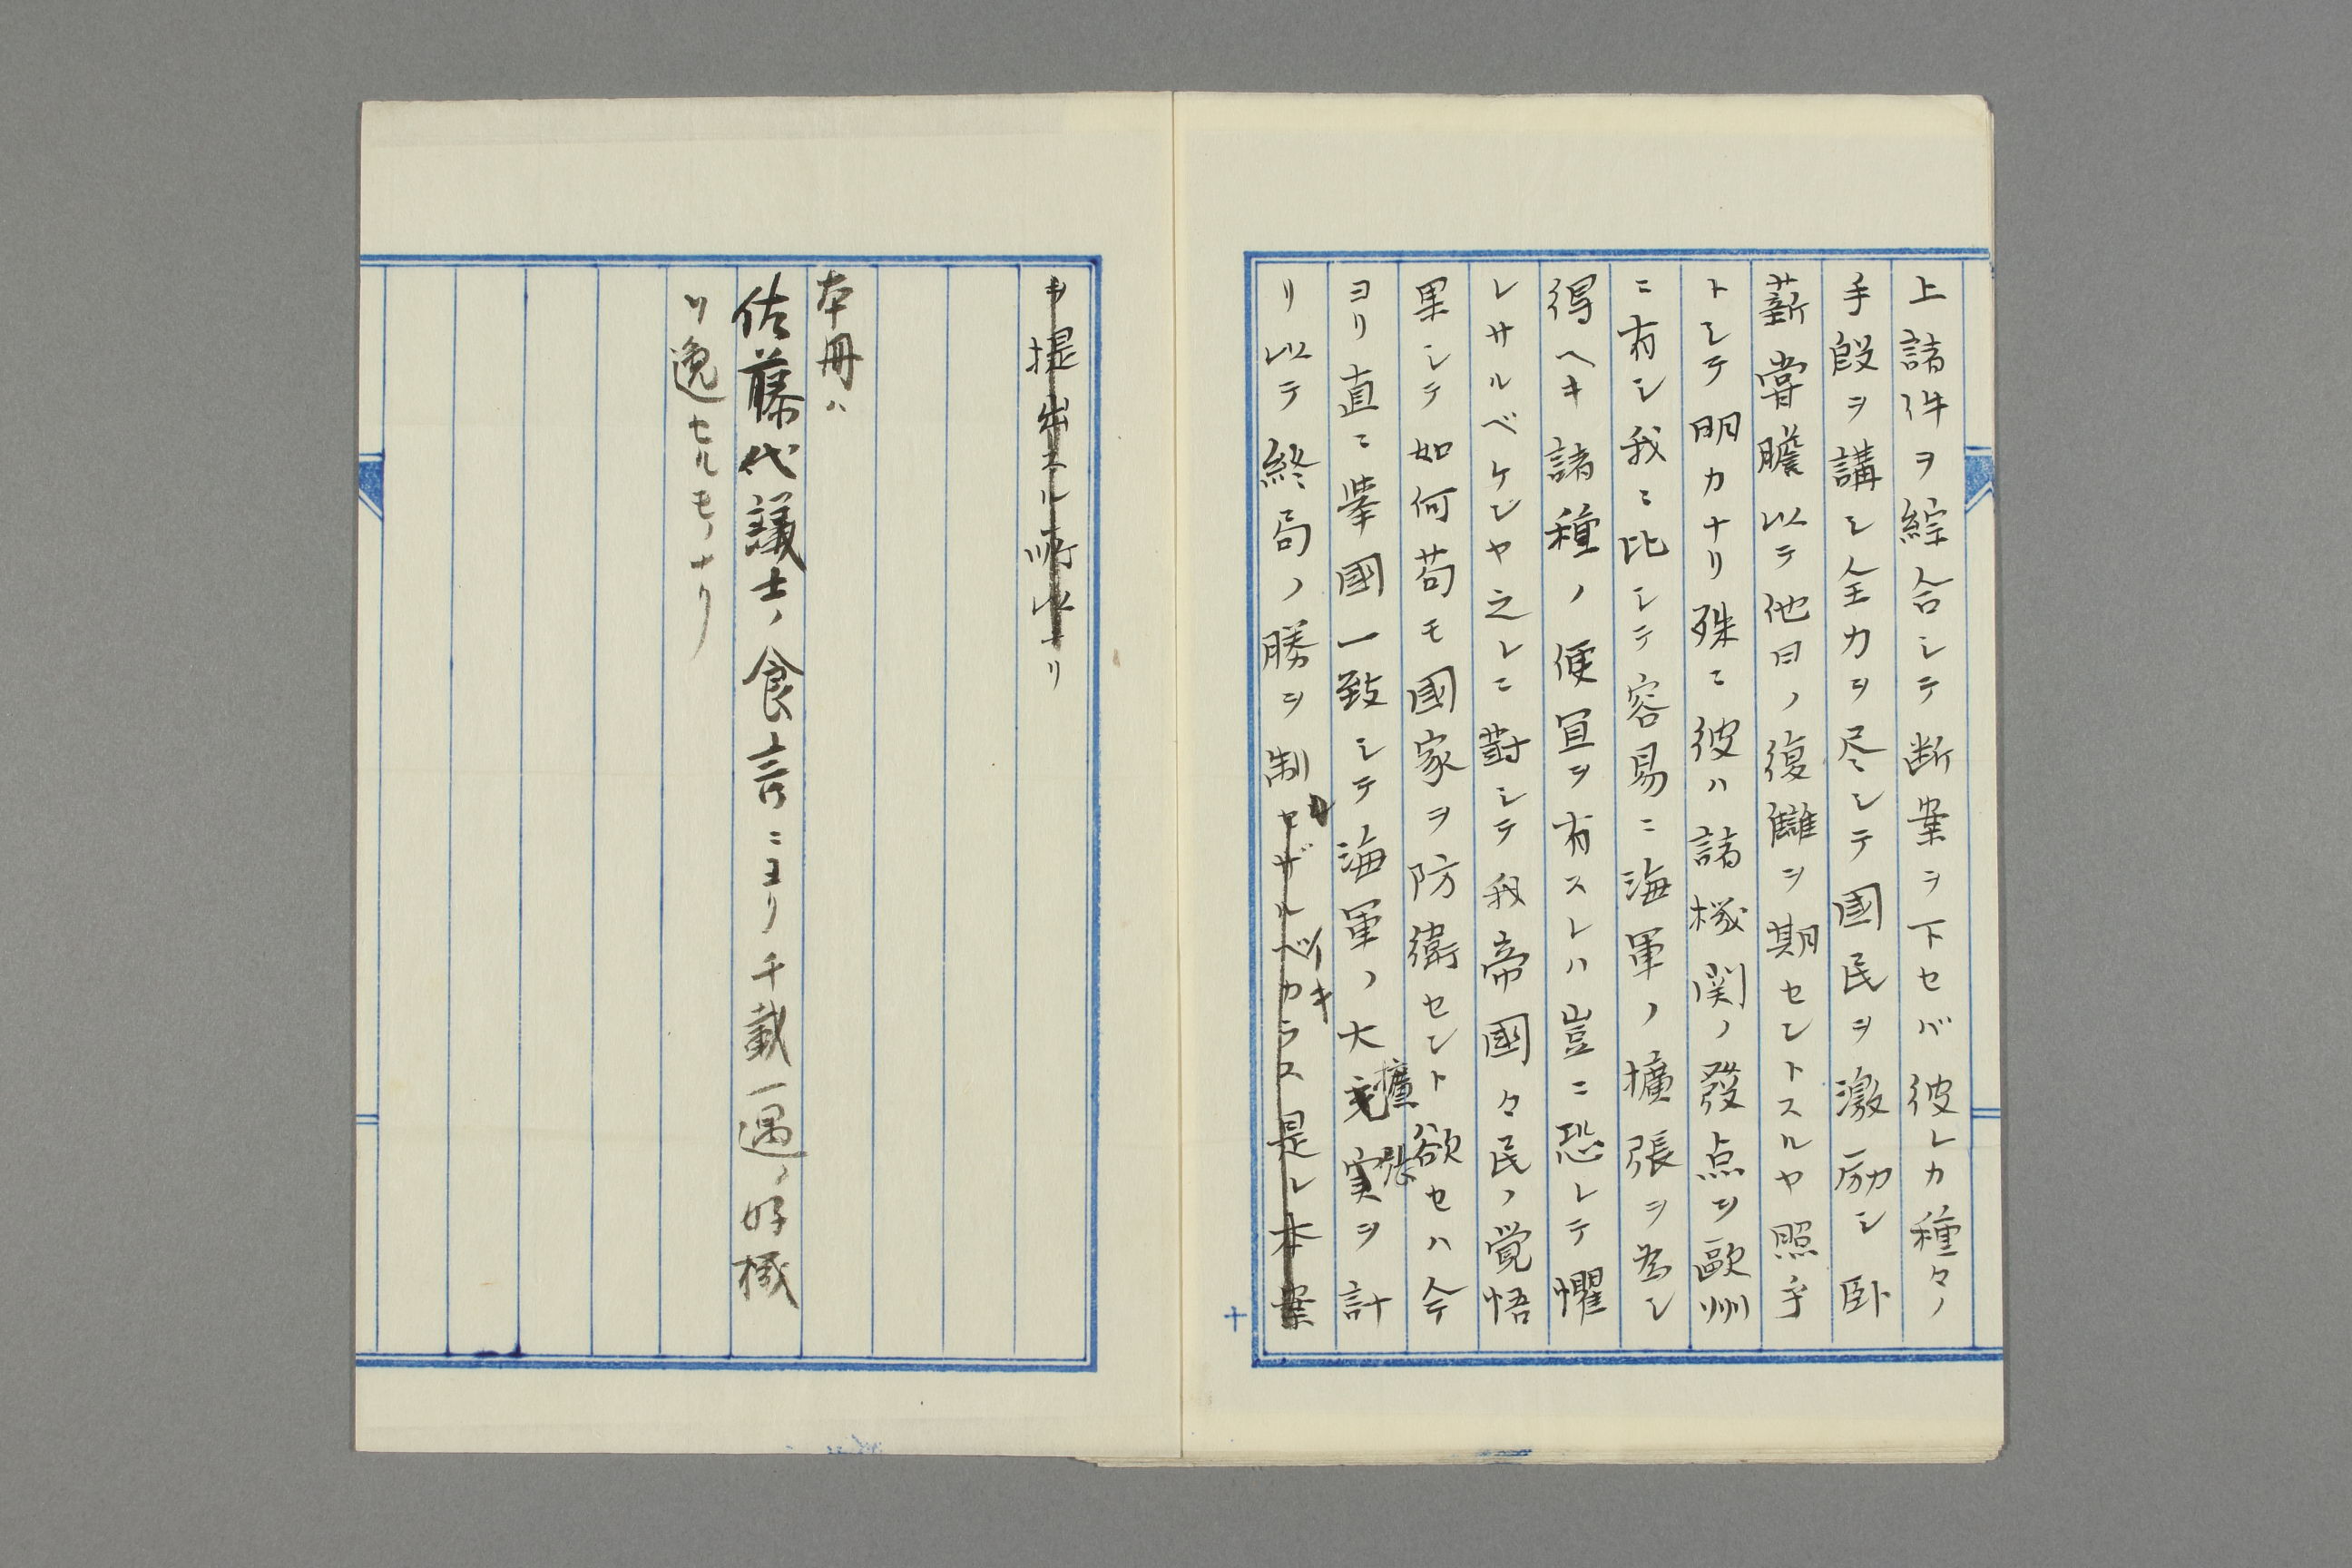 上諸件ヲ綜合シテ断案ヲ下セバ彼レカ種々ノ
手段ヲ講シ全力ヲ尽シテ國民ヲ激励シ臥
薪嘗膽以テ他日ノ復讎ヲ期セントスルヤ照乎
トシテ明カナリ殊ニ彼ハ諸機関ノ發点ヲ歐洲
ニ有シ我ニ比シテ容易ニ海軍ノ擴張ヲ為シ
得ヘキ諸種ノ便宜ヲ有スレハ豈ニ恐レテ懼
レサルベケンヤ之レニ對シテ我帝國々民ノ覚悟
果シテ如何苟モ國家ヲ防衛セント欲セハ今
ヨリ直ニ挙國一致シテ海軍ノ大充実ヲ計
擴張
リ以テ終局ノ勝ヲ制セザルベカラス是レ本案
ヲ提出スル所以ナリ
本冊ハ
佐藤代議士ノ食言ニヨリ千載一遇ノ好機
ヲ逸セルモノナリ